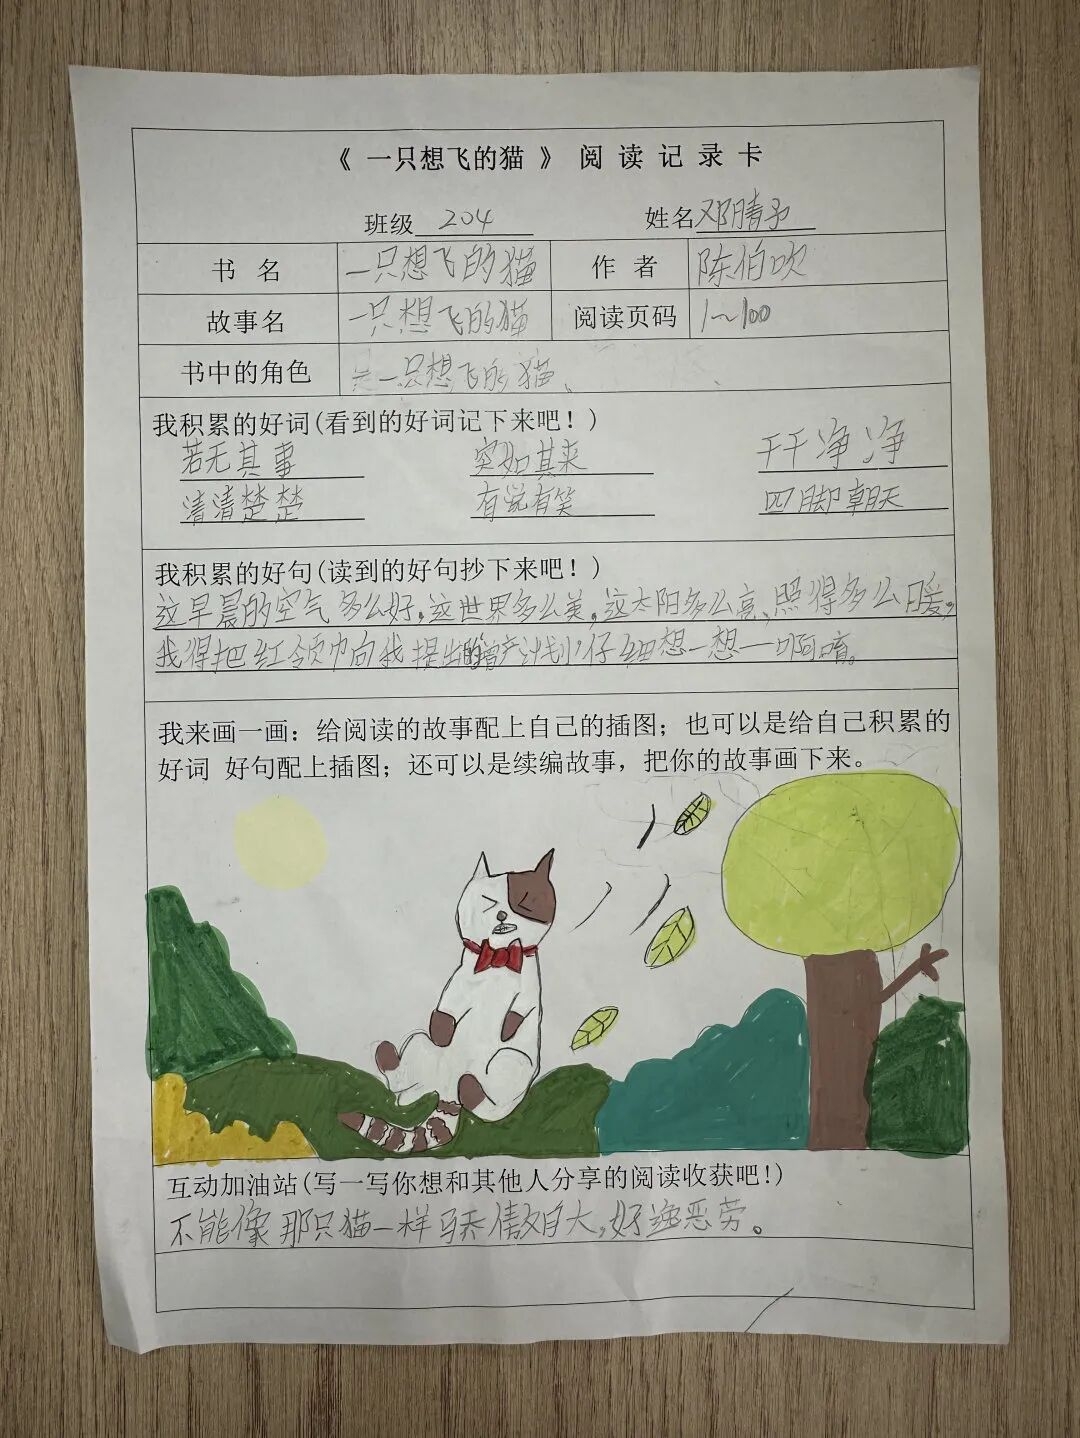 《 一只想飞的猫 》 阅 读 记 录 卡
班级 204 姓名 邓晴予
书 名 一只想飞的猫 作 者 陈伯吹
故事名 一只想飞的猫 阅读页码 1~100
书中的角色 一只想飞的猫、
我积累的好词(看到的好词记下来吧！)
若无其事 突如其来 干干净净
清清楚楚 有说有笑 四脚朝天
我积累的好句(读到的好句抄下来吧！)
这早晨的空气多么好,这世界多么美,这太阳多么亮、照得多么暖,
我得把红领巾向我提出的增产计划,仔细想一想——啊唷。
我来画一画：给阅读的故事配上自己的插图；也可以是给自己积累的
好词 好句配上插图；还可以是续编故事，把你的故事画下来。
互动加油站(写一写你想和其他人分享的阅读收获吧!)
不能像那只猫一样骄傲自大,好逸恶劳。